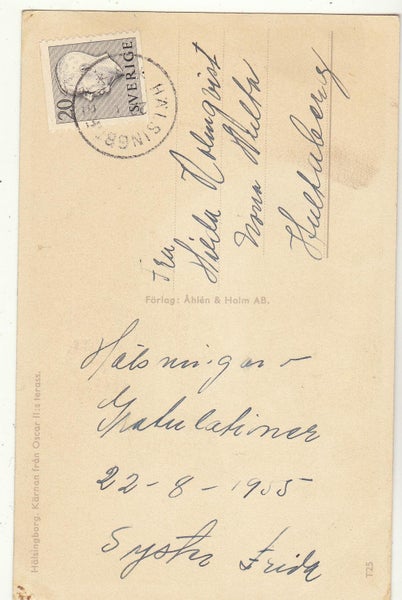 20
SVERIGE
HÄLSINGBORG
Fru
Hilda Holmqvist
Norra Hult
Hultaberg
Förlag: Åhlén & Holm AB.
Hälsningar o
Gratulationer
22-8-1955
Syster Frida
Hälsingborg. Kärnan från Oscar II:s terass.
T-25